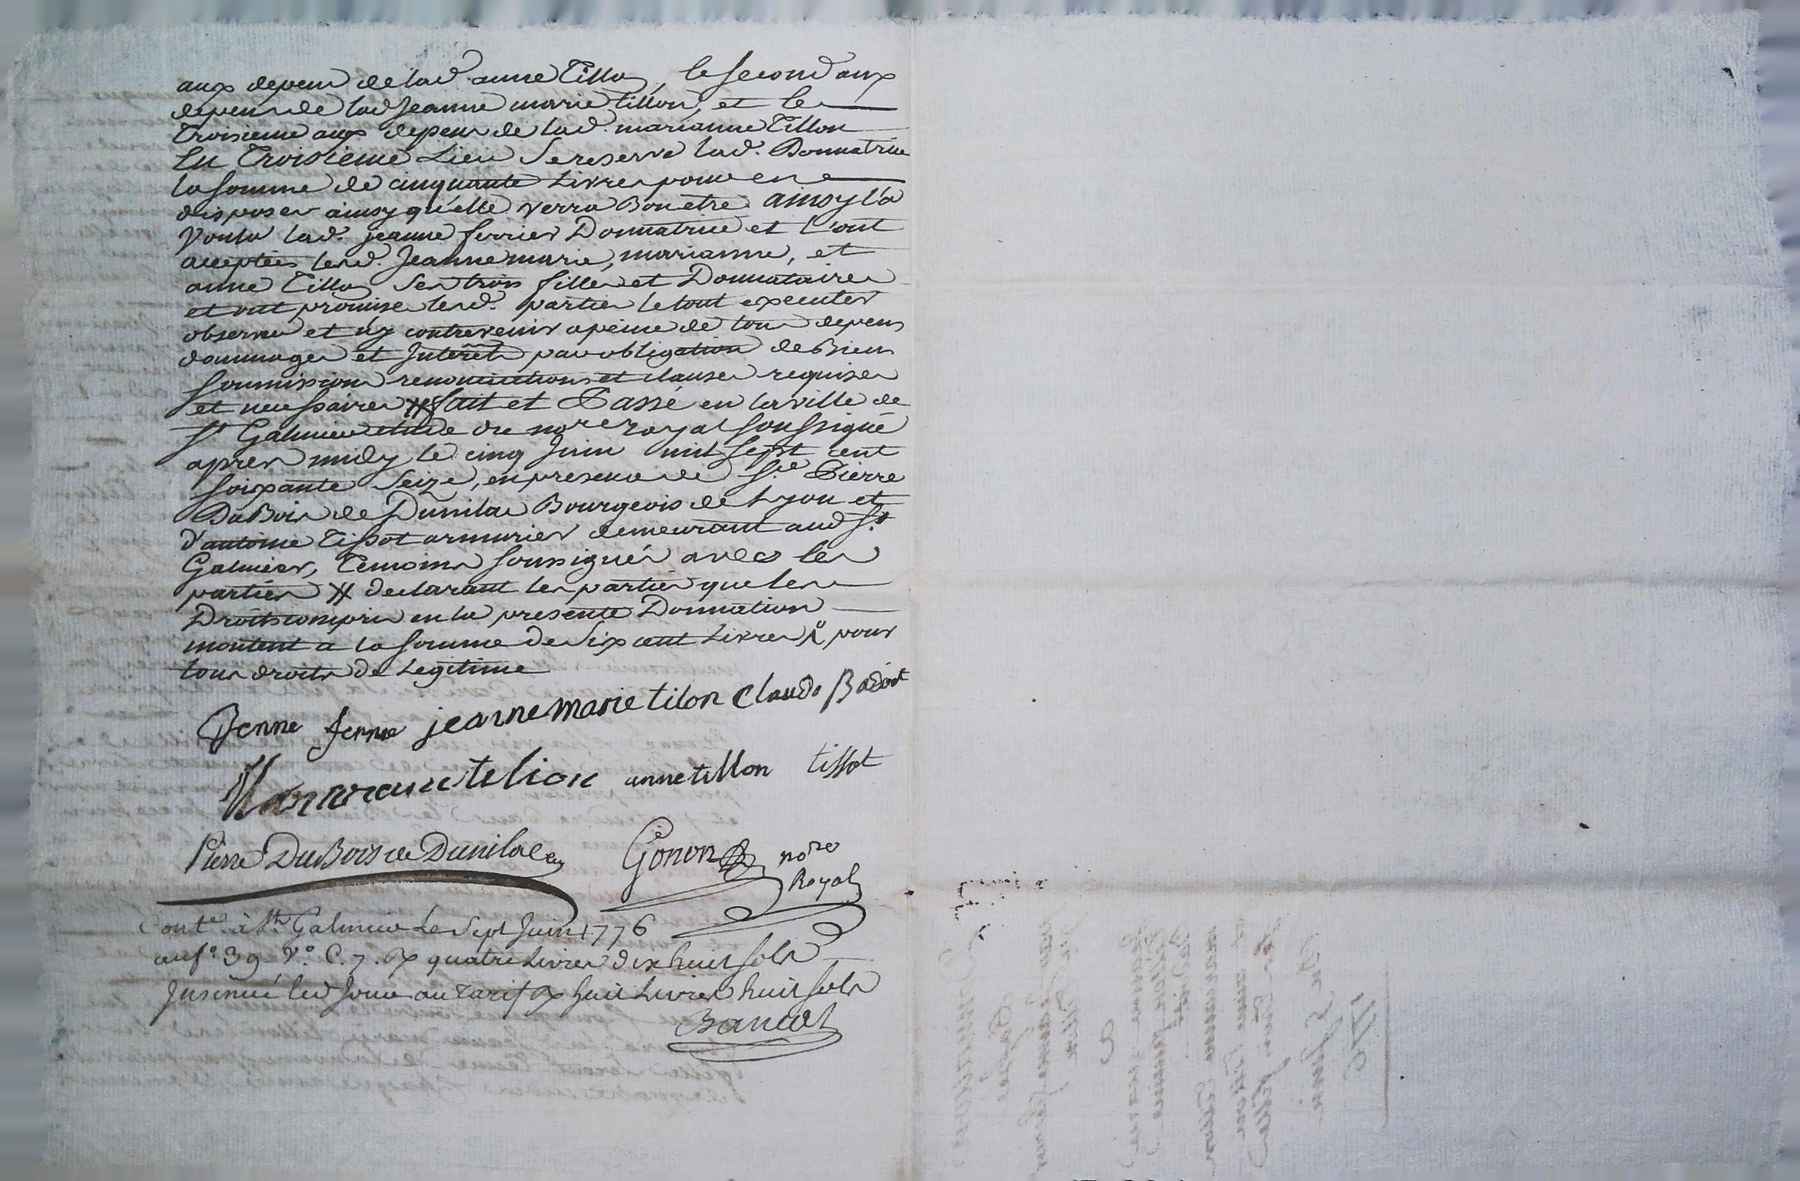 aux depens de lad. anne Tillon, le second aux
depens de lad. Jeanne marie tillon, et le
Troisieme aux depens de lad. marianne Tillon
En Troisieme Lieu Se reserve lad. Donnatrice
la somme de cinquante Livres pour en
disposer ainsy qu'elle verra Bon etre ainsy l'a
Voulu lad. jeanne ferrier Donnatrice et l'ont
acceptées lesd. Jeanne marie, marianne, et
anne Tillon Ses trois filles et Donnataires
et ont promise lesd. parties le tout executer
observer et n'y contrevenir a peine de tous depens
dommages et Interêts par obligation de Biens
Soumission renonciations et clauses requises
et necessaires X fait et Passé en la ville de
St Galmier etude du nore royal soussigné
apres midy le cinq Juin mil sept cent
soixante Seize, en presence de Sr. Pierre
DuBois de Dunilac Bourgeois de Lyon et
d'antoine Tissot armurier demeurant aud St
Galmier, Temoins soussignés avec les
parties X declarant les parties que les
Droits compris en la presente Donnation
montent a la somme de Six cent Livres pour
tous droits de Legitime
jeanne marie tilon Claude
anne tillon tissot
Pierre DuBois de Dunilac Gonon nore
Royal
Conté. à St. Galmier le Sept Juin 1776
au fo. 39 vo. C. 7. Rx quatre Livres dix huit sols
Insinué led Jour au Tarif Rx huit Livres huit sols